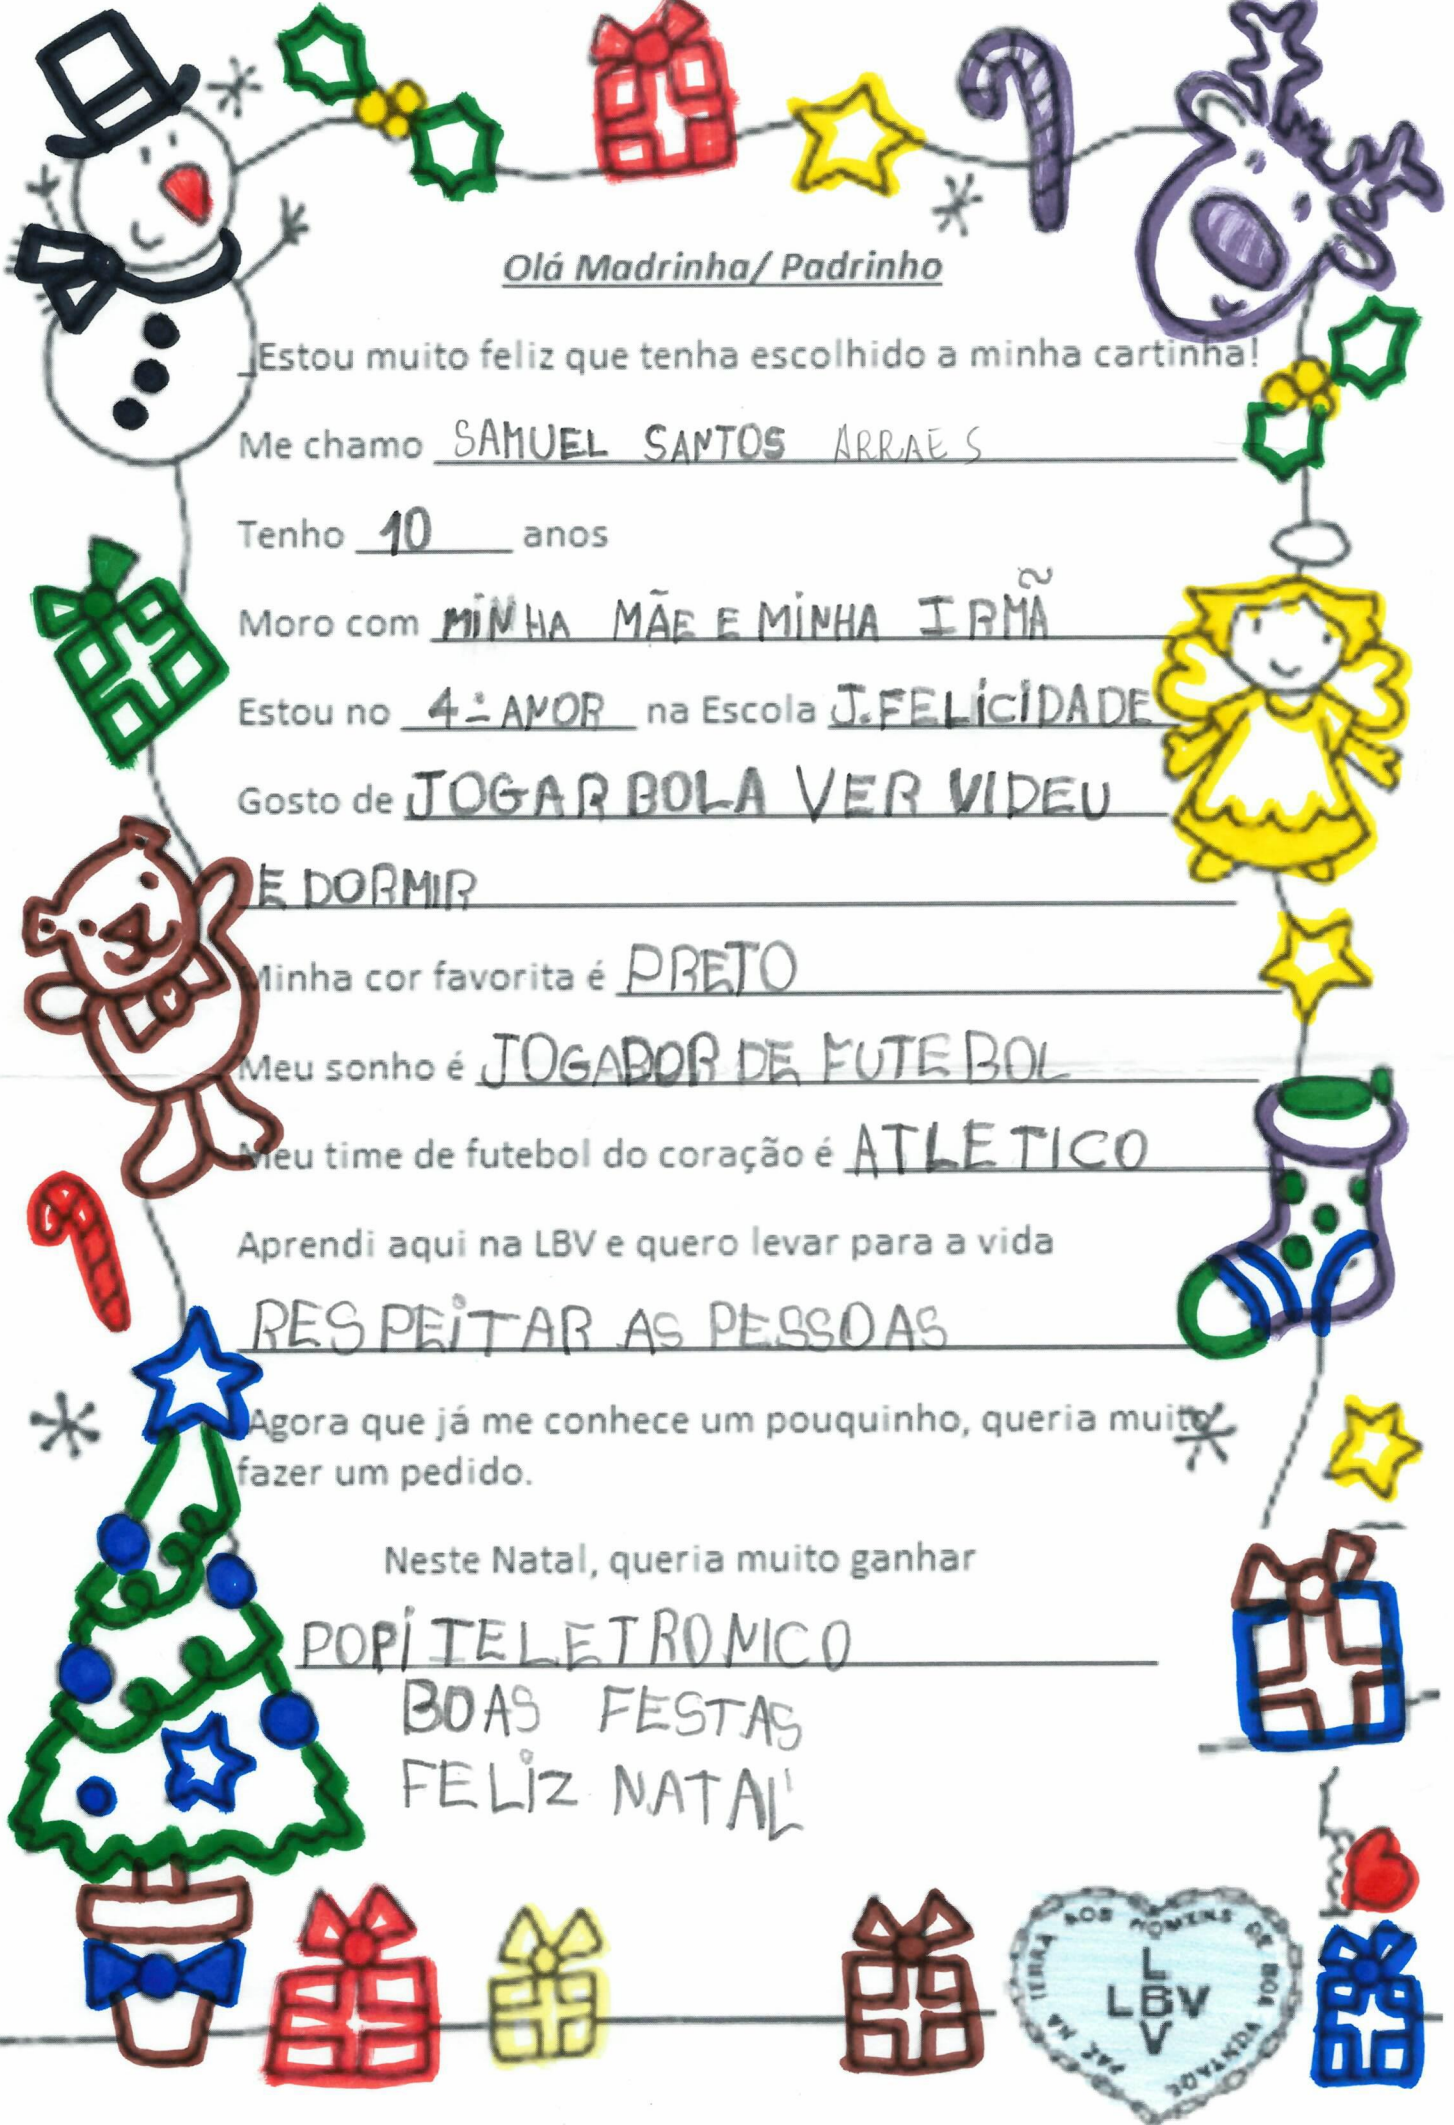 Olá Madrinha/ Padrinho
Estou muito feliz que tenha escolhido a minha cartinha!
Me chamo SAMUEL SANTOS ARRAES
Tenho 10 anos
Moro com MINHA MÃE E MINHA IRMÃ
Estou no 4º ANOR na Escola J.FELICIDADE
Gosto de JOGAR BOLA VER VIDEU
E DORMIR
Minha cor favorita é PRETO
Meu sonho é JOGADOR DE FUTEBOL
Meu time de futebol do coração é ATLETICO
Aprendi aqui na LBV e quero levar para a vida
RESPEITAR AS PESSOAS
Agora que já me conhece um pouquinho, queria muito
fazer um pedido.
Neste Natal, queria muito ganhar
POPITELETRONICO
BOAS FESTAS
FELIZ NATAL
PAZ NA TERRA AOS HOMENS DE BOA VONTADE
L
LBV
V